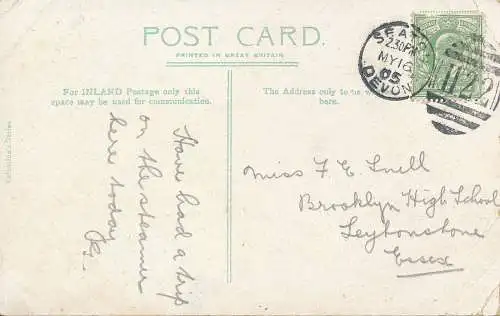 POST CARD.
PRINTED IN GREAT BRITAIN
For INLAND Postage only this
space may be used for communication.
The Address only to be
here.
SEATON
2.30PM
MY 16
05
DEVON
Have had a trip
on the steamer
here today
Miss F E Snell
Brooklyn High School
Leytonstone
Essex